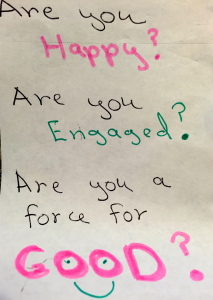 Are you
Happy?
Are you
Engaged?
Are you a
force for
GOOD?